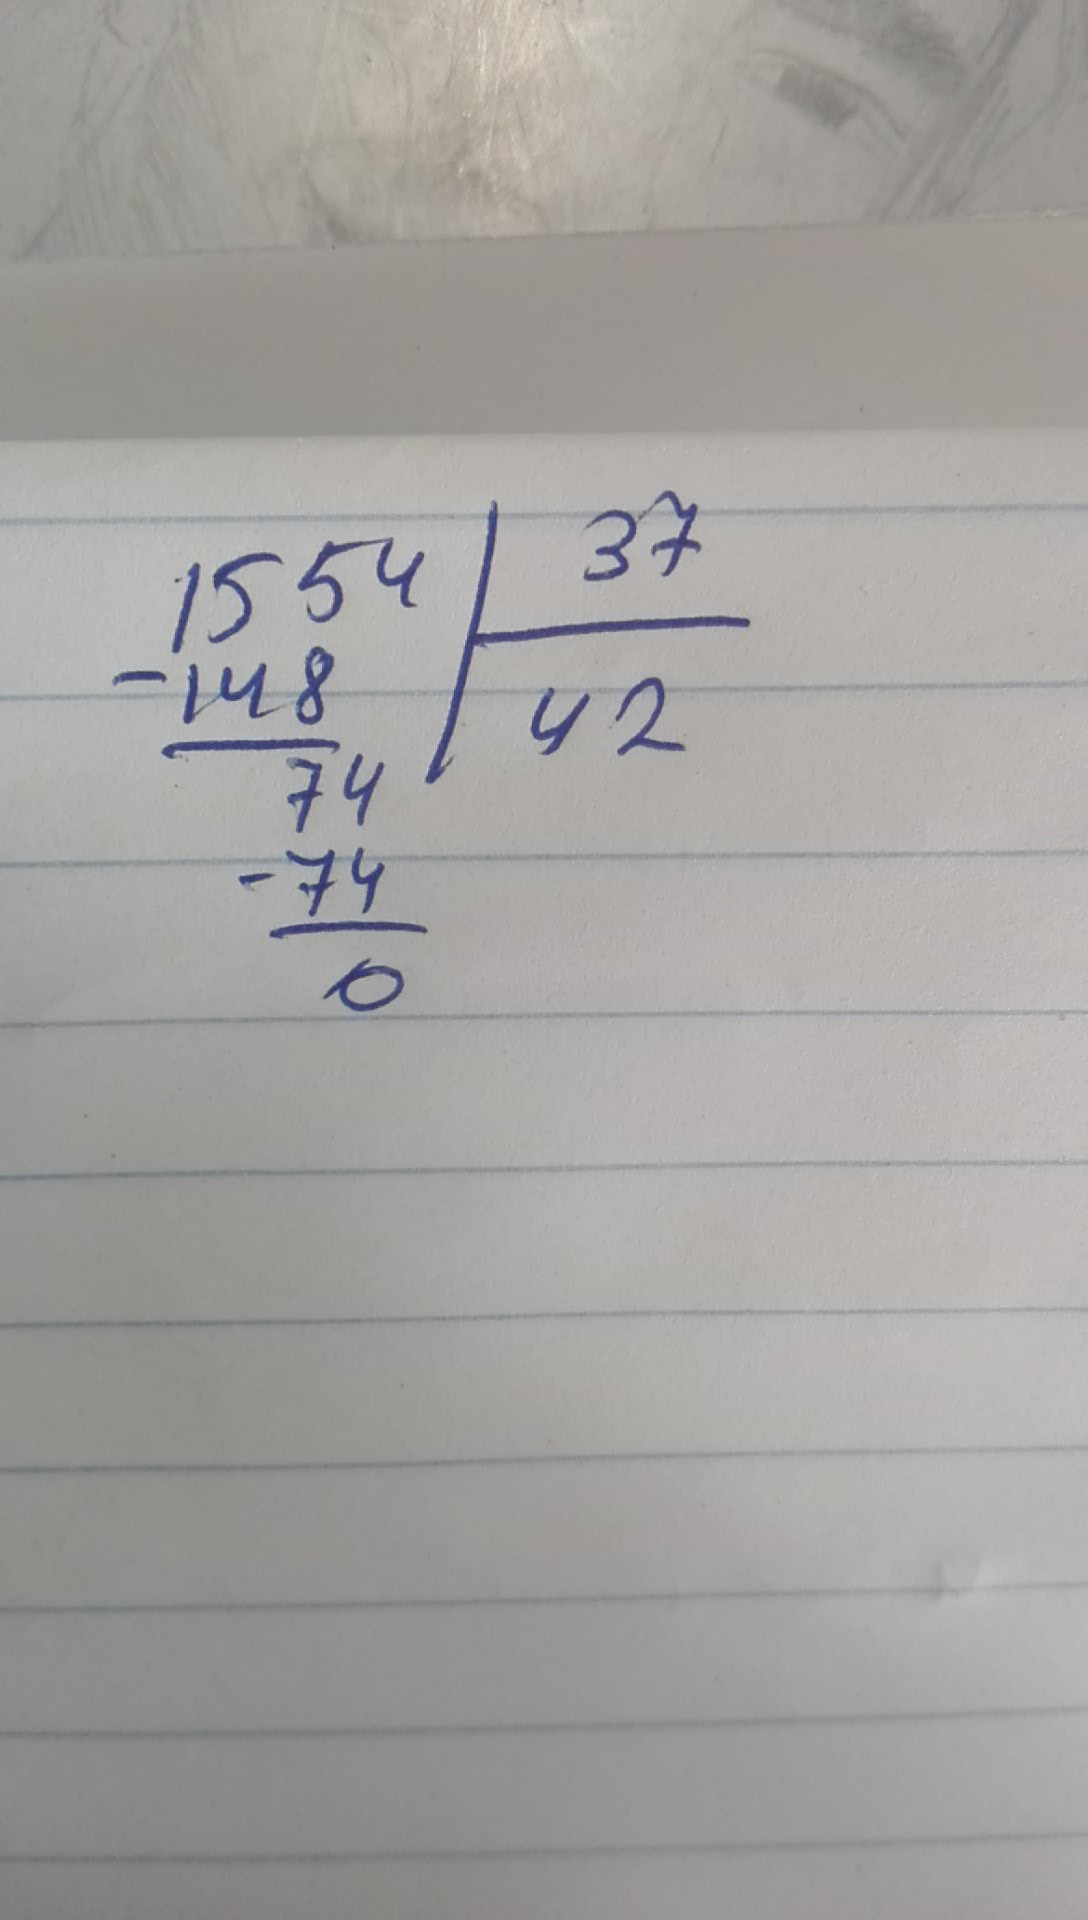 1554 | 37
-148 | 42
74
-74
0